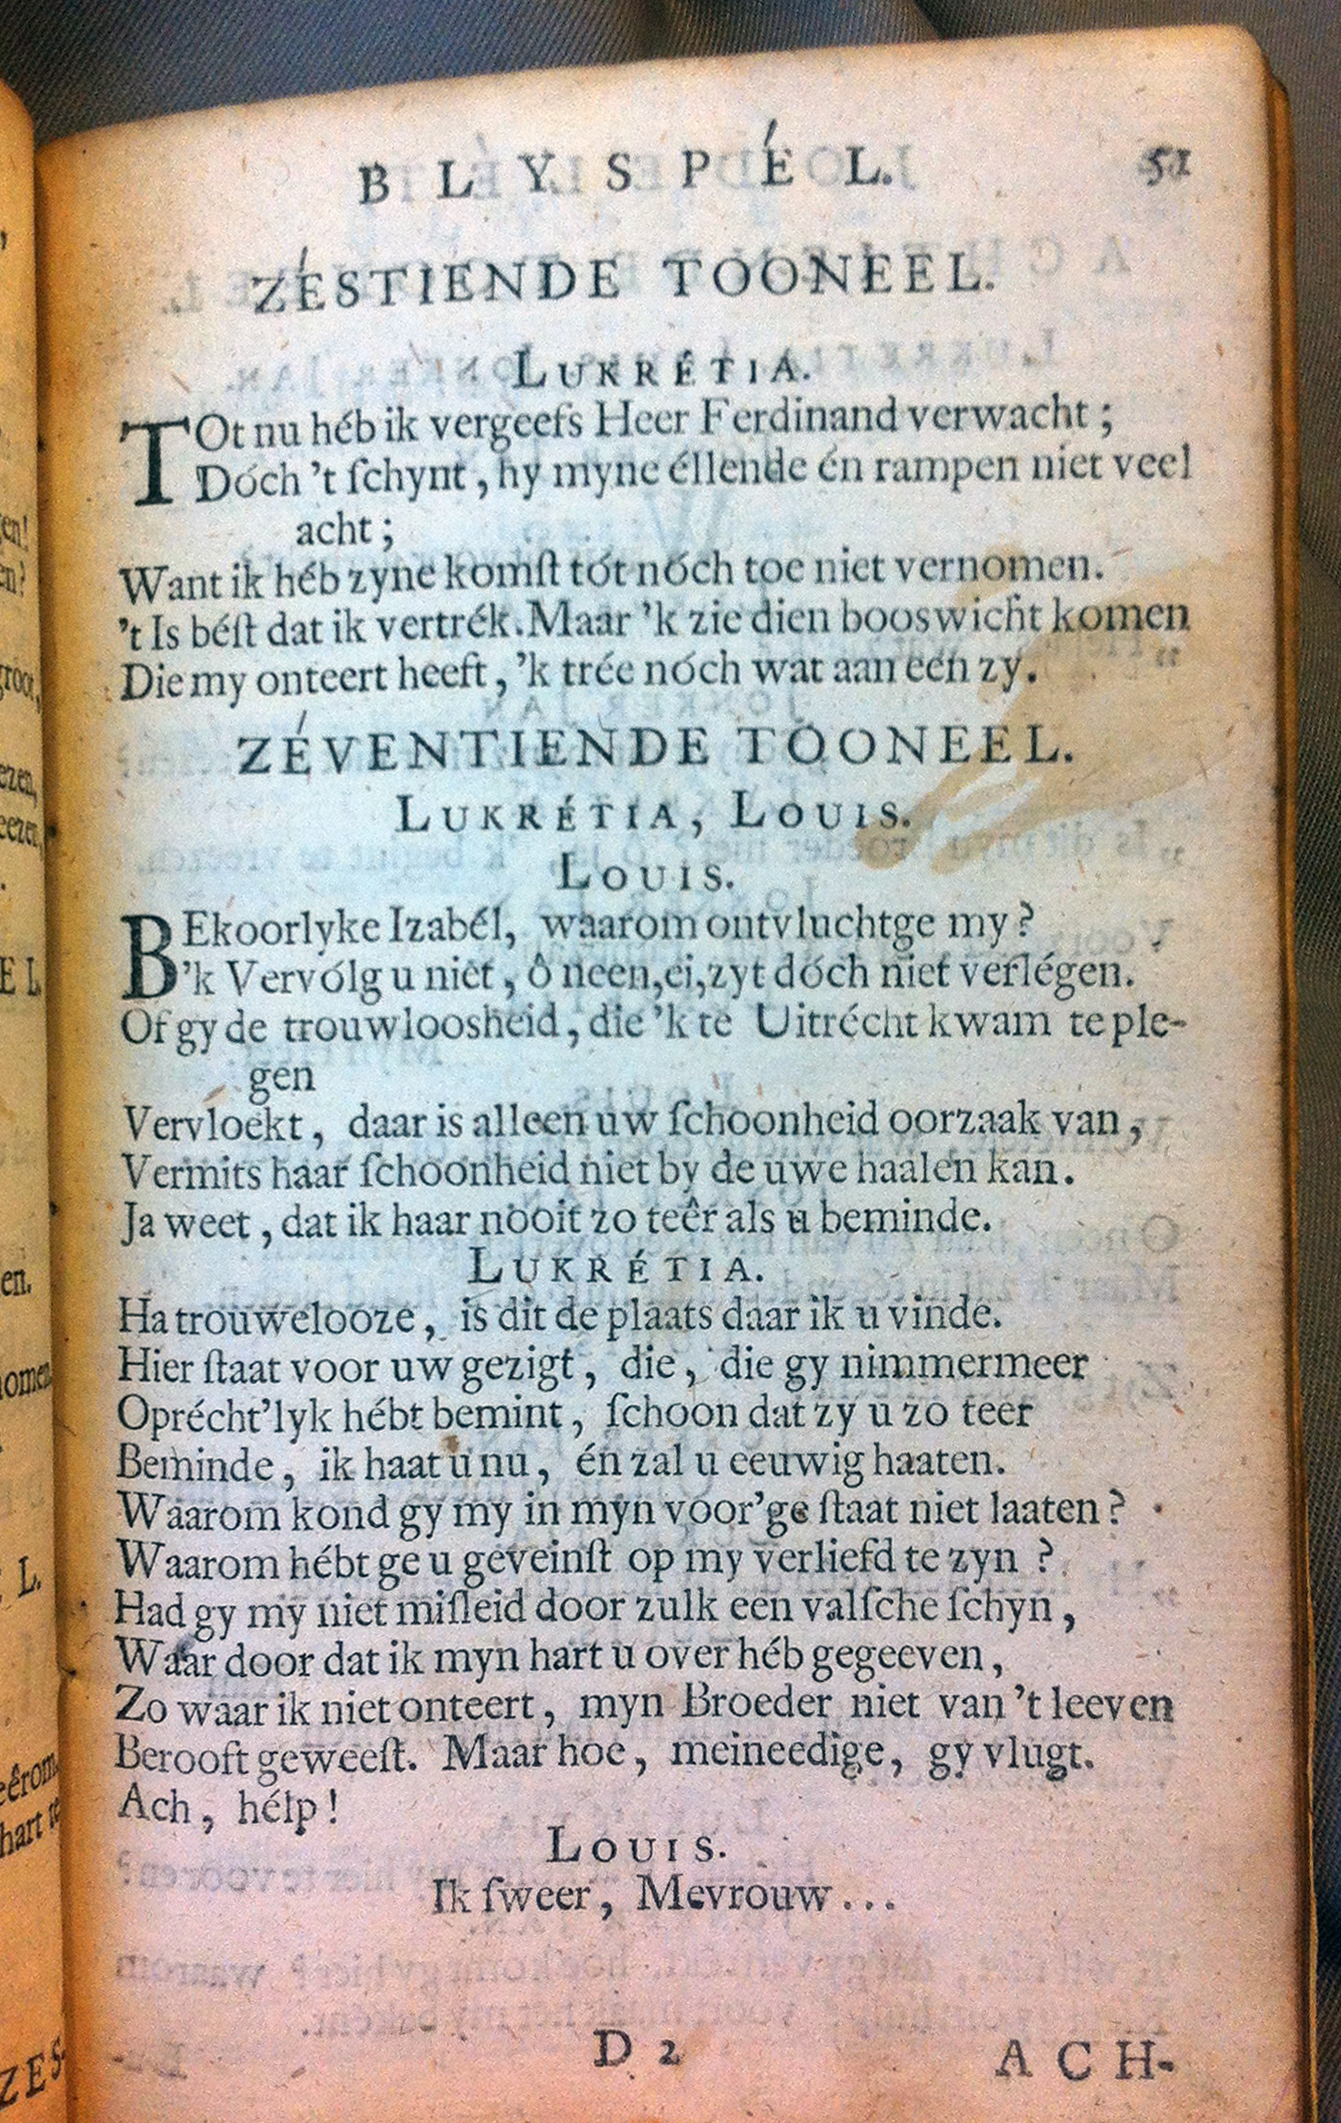 BLYSPÉL. 51
ZÉSTIENDE TOONEEL.
LUKRÉTIA.
TOt nu héb ik vergeefs Heer Ferdinand verwacht;
Dóch 't ſchynt, hy myne éllende én rampen niet veel
acht;
Want ik héb zyne komſt tót nóch toe niet vernomen.
't Is béſt dat ik vertrék. Maar 'k zie dien booswicht komen
Die my onteert heeft, 'k trée nóch wat aan een zy.
ZÉVENTIENDE TOONEEL.
LUKRÉTIA, LOUIS.
LOUIS.
BEkoorlyke Izabél, waarom ontvluchtge my?
'k Vervólg u niet, ô neen, ei, zyt dóch niet verſlégen.
Of gy de trouwloosheid, die 'k te Uitrécht kwam te ple-
gen
Vervloekt, daar is alleen uw ſchoonheid oorzaak van,
Vermits haar ſchoonheid niet by de uwe haalen kan.
Ja weet, dat ik haar nooit zo teêr als u beminde.
LUKRÉTIA.
Ha trouwelooze, is dit de plaats daar ik u vinde.
Hier ſtaat voor uw gezigt, die, die gy nimmermeer
Oprécht'lyk hébt bemint, ſchoon dat zy u zo teer
Beminde, ik haat u nu, én zal u eeuwig haaten.
Waarom kond gy my in myn voor'ge ſtaat niet laaten?
Waarom hébt ge u geveinſt op my verliefd te zyn?
Had gy my niet miſleid door zulk een valſche ſchyn,
Waar door dat ik myn hart u over héb gegeeven,
Zo waar ik niet onteert, myn Broeder niet van 't leeven
Berooft geweeſt. Maar hoe, meineedige, gy vlugt.
Ach, hélp!
LOUIS.
Ik ſweer, Mevrouw...
D 2 ACH-